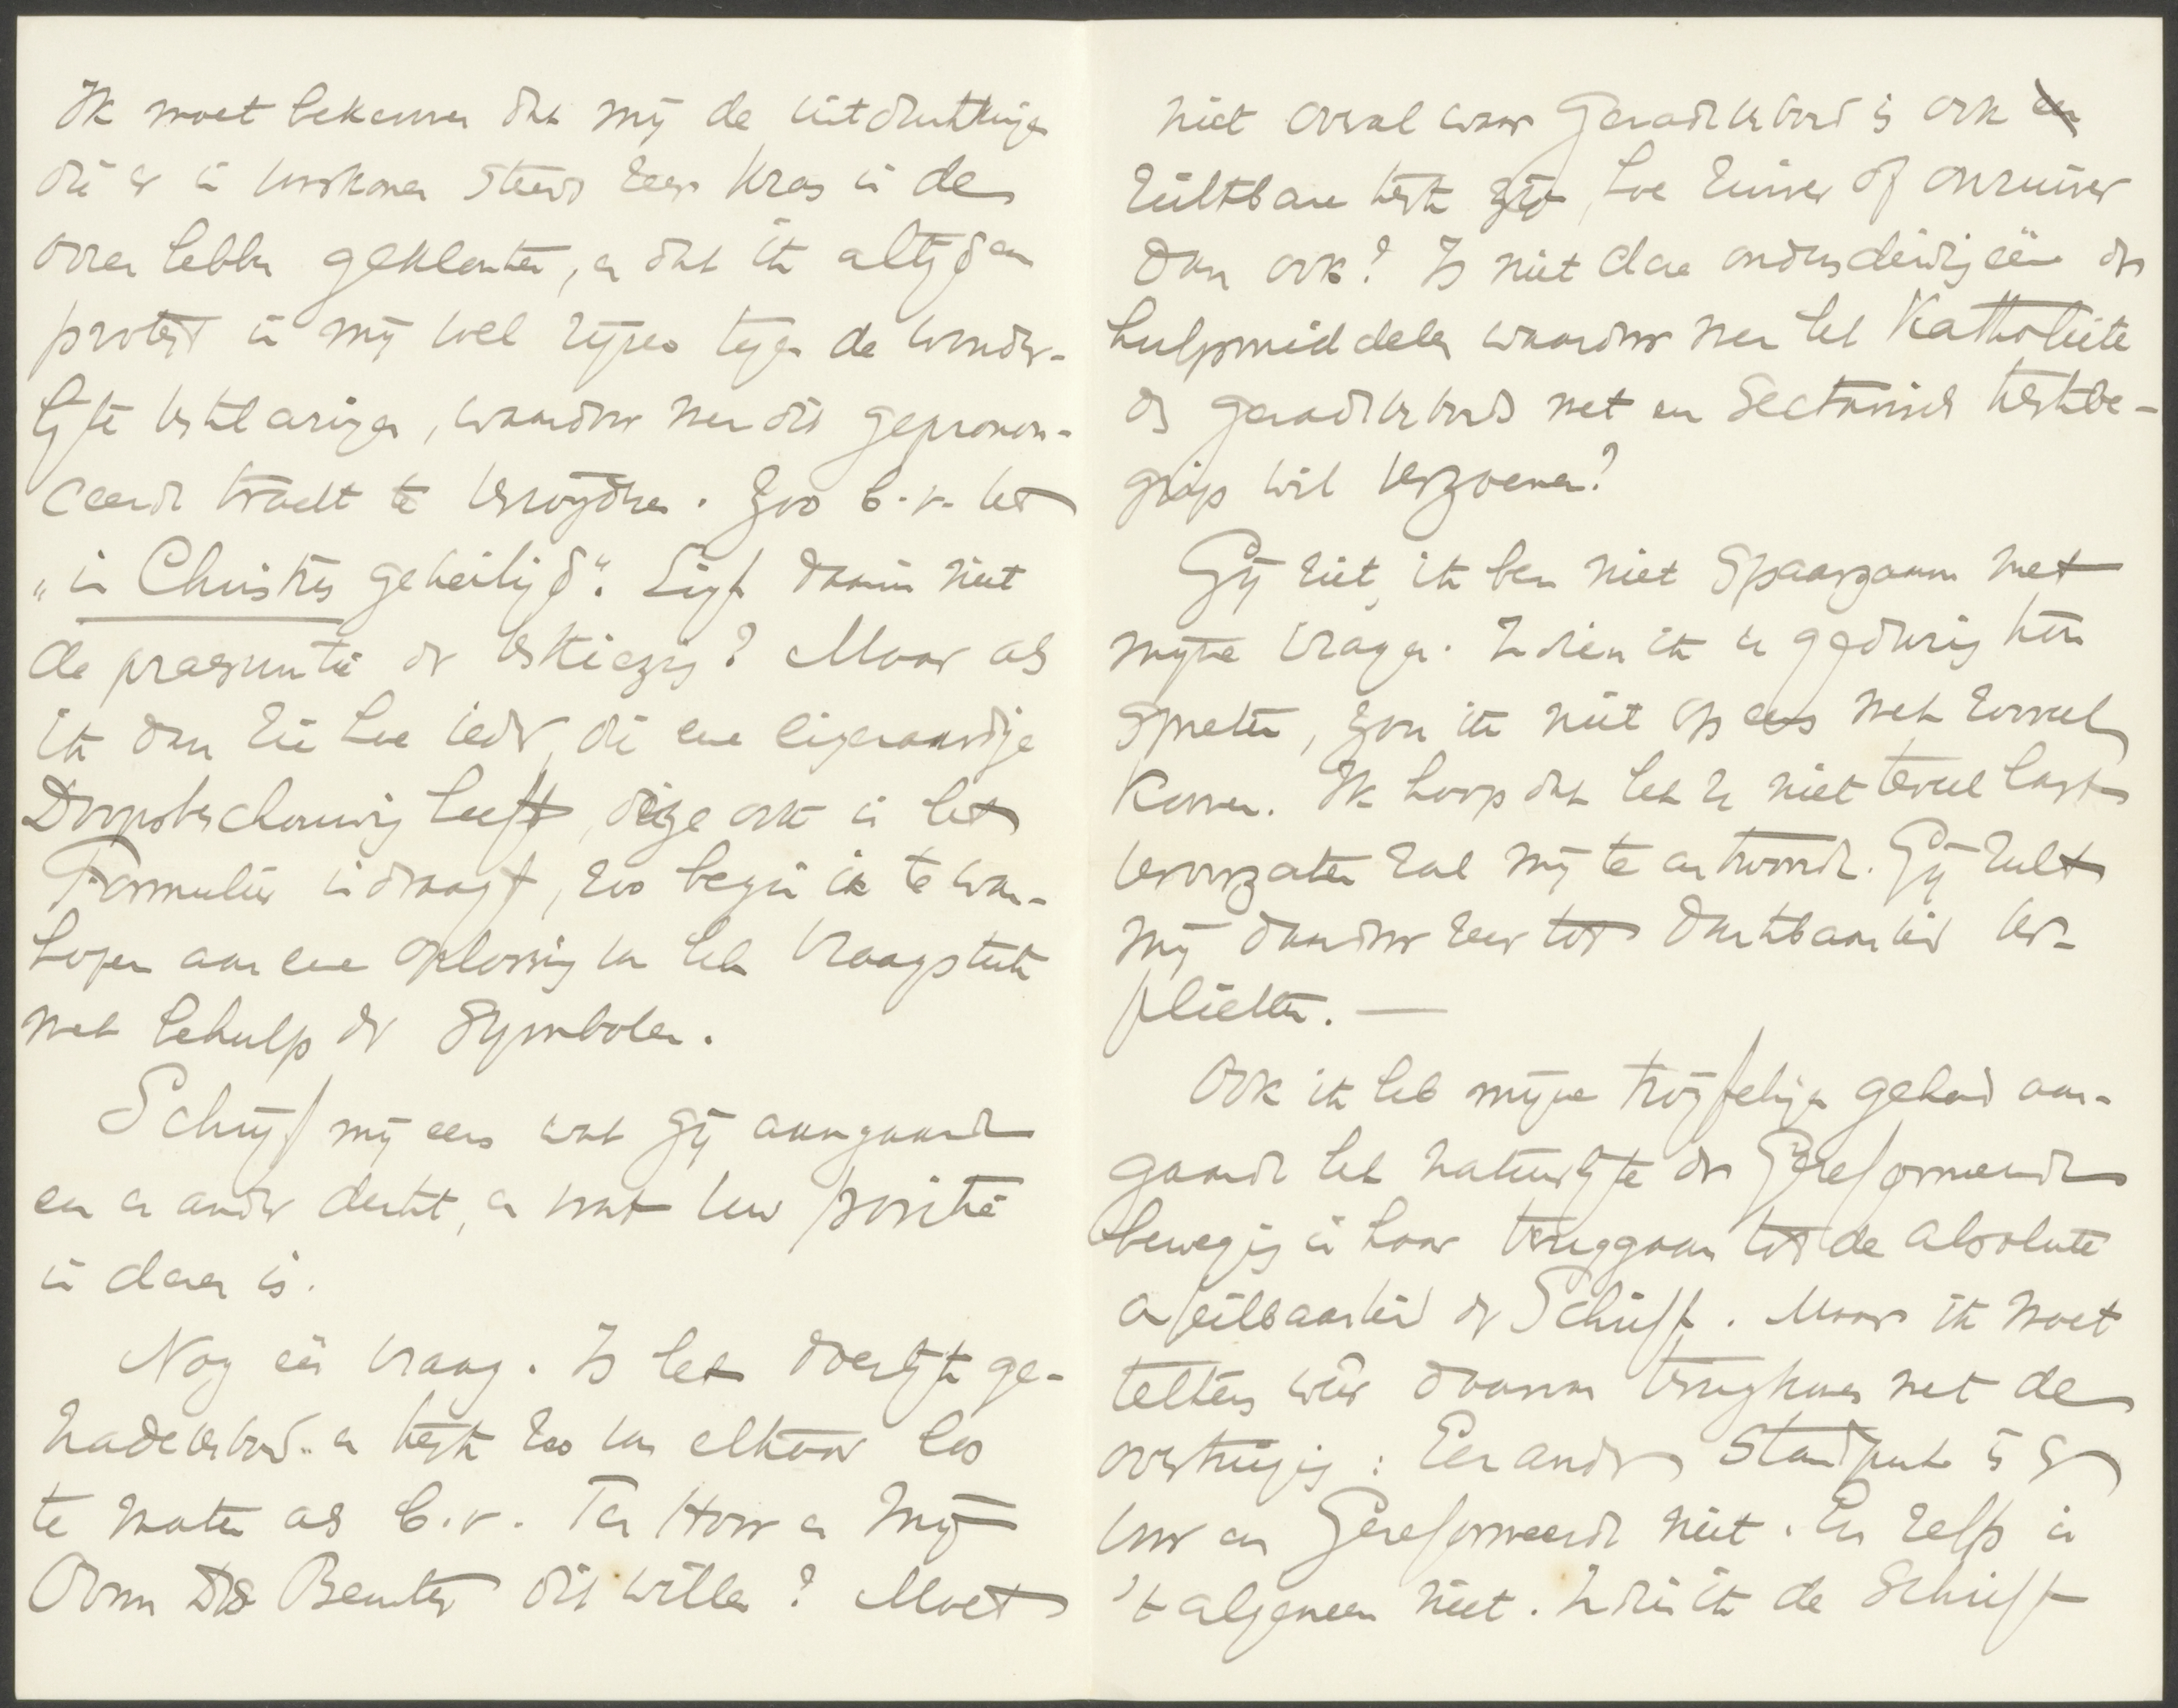 Ik moet bekennen dat mij de uitdrukkingen
die er in voorkomen steeds zeer kras in de
ooren hebben geklonken, en dat ik altijd een
protest in mij voel rijzen tegen de wonder-
lijke verklaringen, waardoor men dit geprononceerde
ceerde tracht te verwijderen. Zoo b.v. het
„in Christus geheiligd". Ligt daarin niet
de praesumtie der verkiezing? Maar als
ik dan zie hoe ieder, die eene eigenaardige
Doopsbeschouwing heeft, deze ook in het
Formulier indraagt, zoo begin ik te wan-
hopen aan eene oplossing van het vraagstuk
met behulp der Symbolen.
Schrijf mij eens wat gij aangaande
een en ander denkt, en wat uw positie
in dezen is.
Nog één vraag. Is het doenlijk ge-
nadeverbond en kerk zoo van elkaar los
te maken als b.v. Ten Hoor en Mijn
Oom Ds Beuker dit willen? Moet
niet overal waar Genadeverbond is ook
zichtbare kerk zijn, hoe zuiver of onzuiver
dan ook? Is niet deze onderscheiding één der
hulpmiddelen waardoor men het Katholieke
des genadeverbonds met een Sectarisch kerkbe-
grip wil verzoenen?
Gij ziet, ik ben niet spaarzaam met
mijne vragen. Indien ik u gedurig kon
spreken, zou ik niet op eens met zooveel
komen. Ik hoop dat het U niet teveel last
veroorzaken zal mij te antwoorden. Gij zult
mij daardoor zeer tot dankbaarheid ver-
plichten. —
Ook ik heb mijne twijfelingen gehad aan-
gaande het natuurlijke der Gereformeerde
beweging in haar teruggaan tot de absolute
onfeilbaarheid der Schrift. Maar ik moet
telkens weer daarom terugkomen met de
overtuiging: Een ander standpunt is er
voor een Gereformeerde niet. En zelfs in
't algemeen niet. Indien ik de Schrift